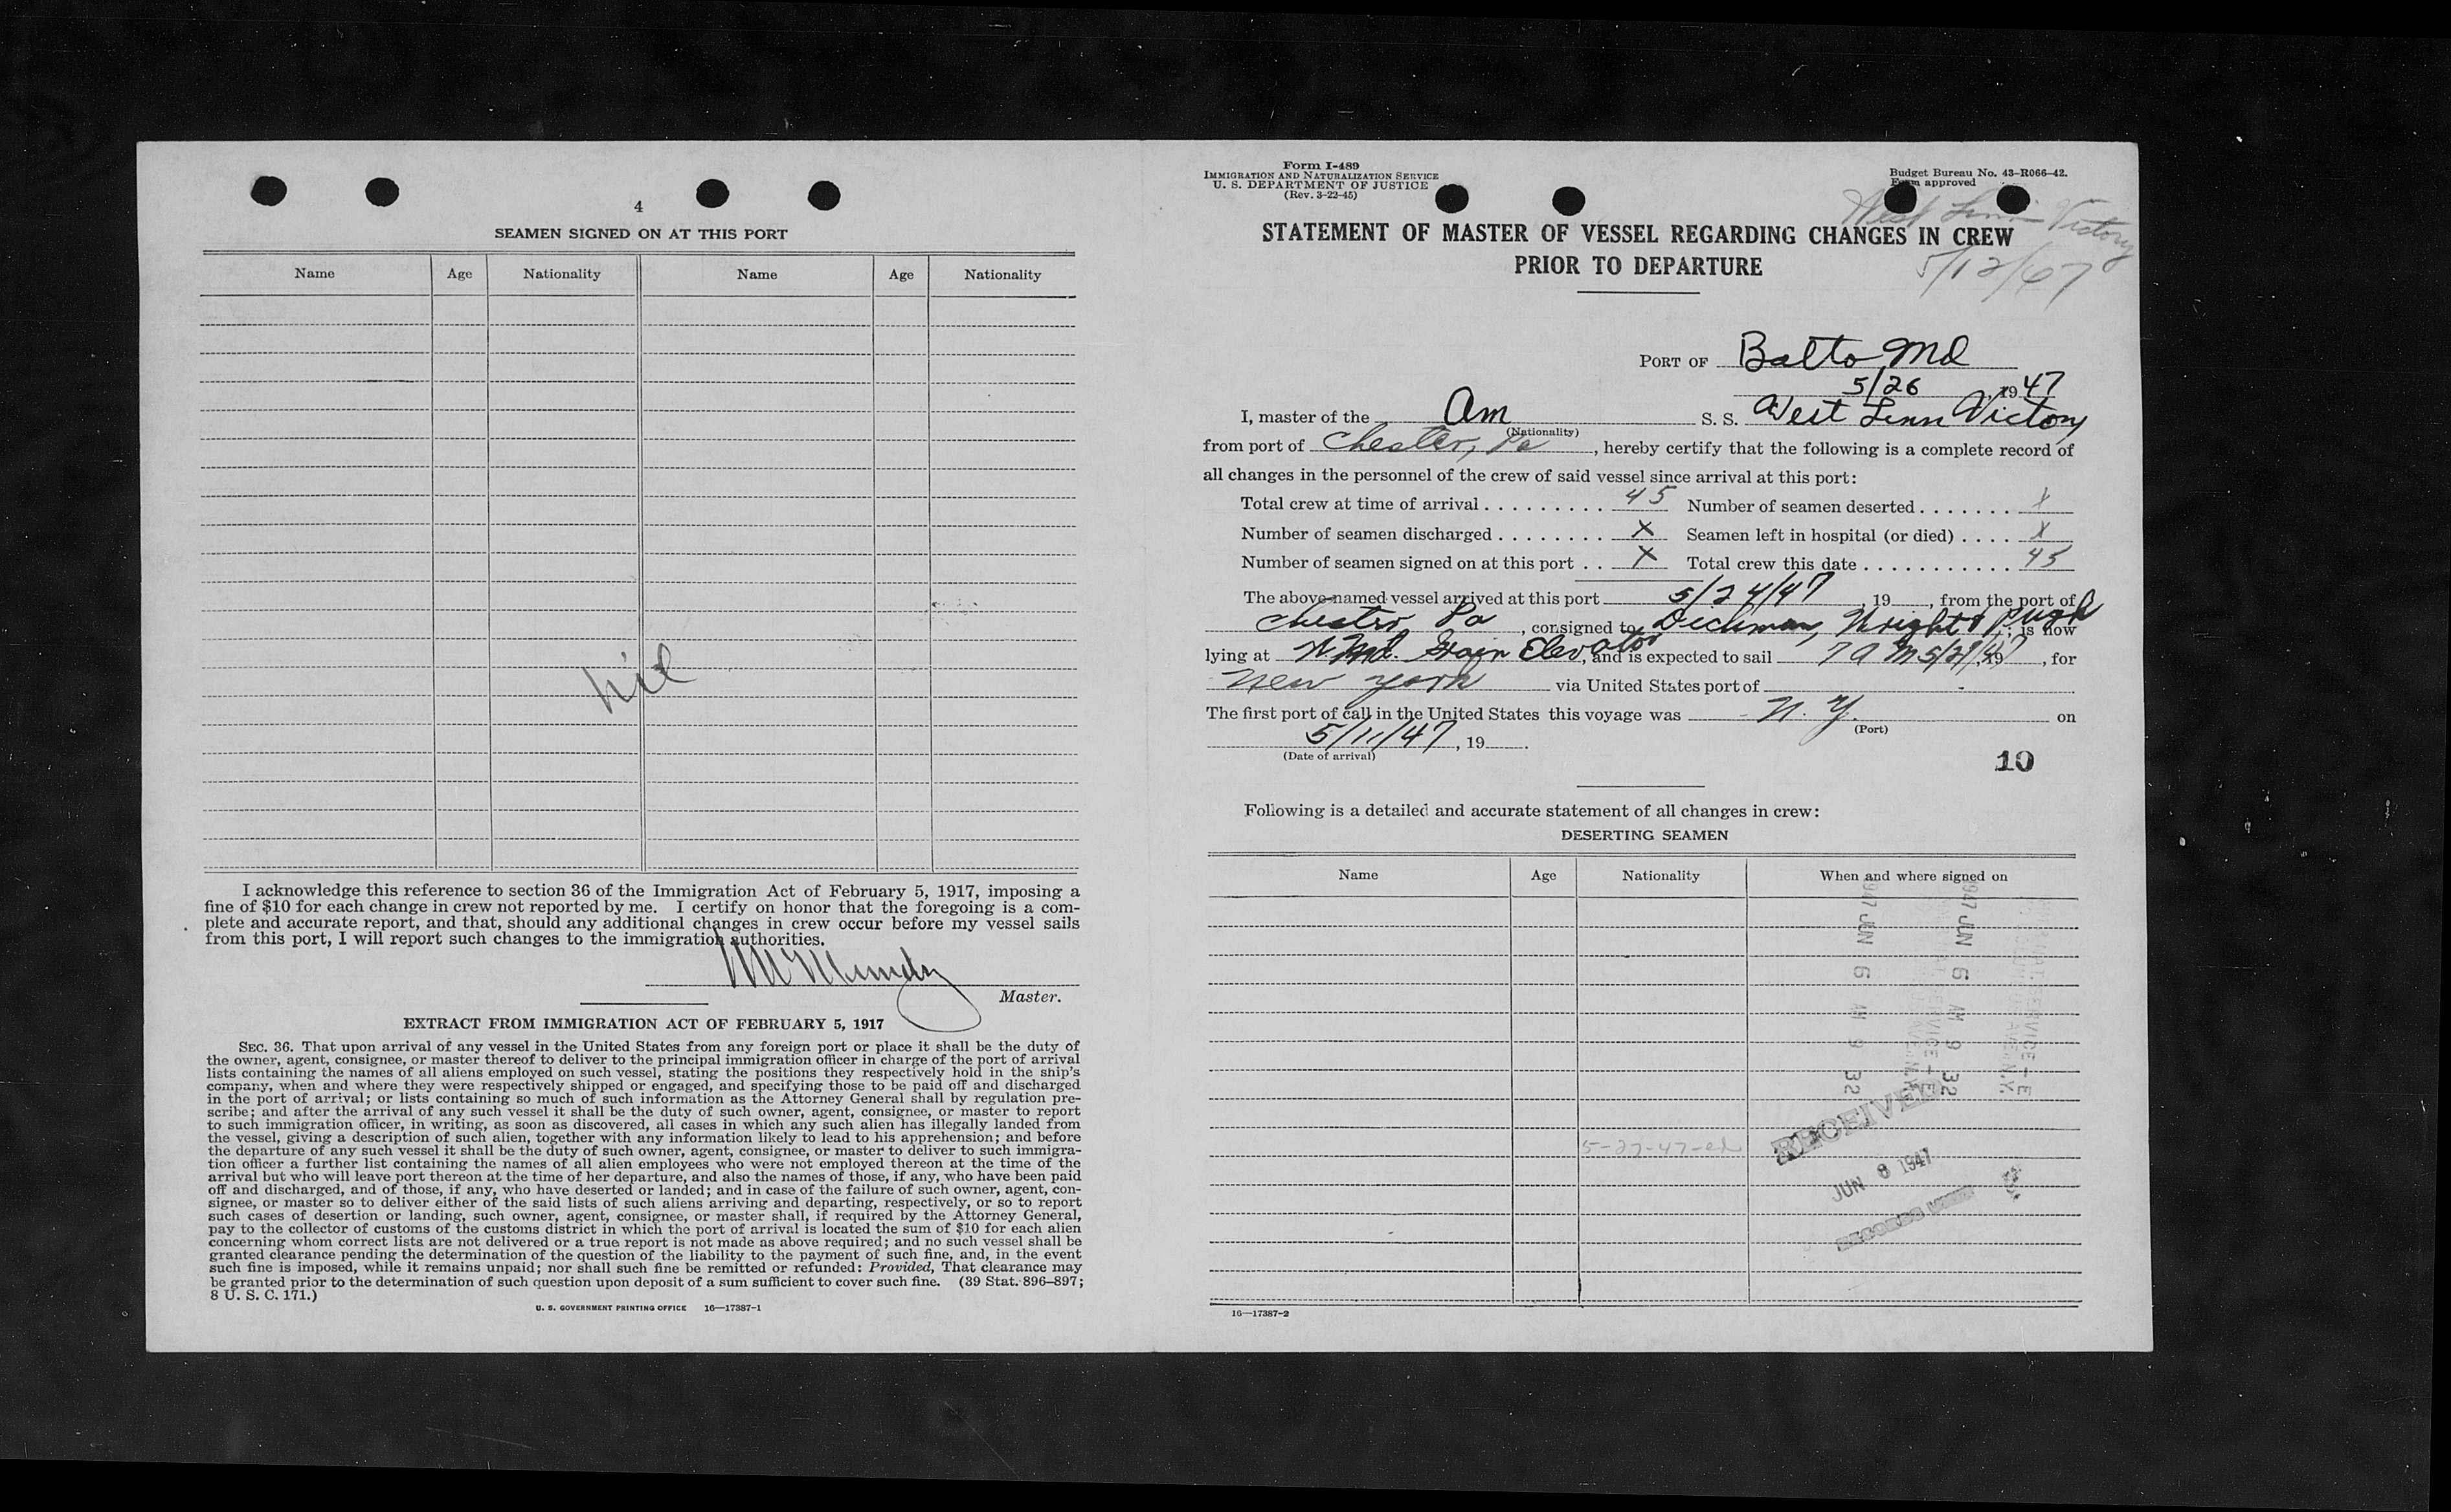 4
SEAMEN SIGNED ON AT THIS PORT
Name Age Nationality Name Age Nationality
nil
I acknowledge this reference to section 36 of the Immigration Act of February 5, 1917, imposing a
fine of $10 for each change in crew not reported by me. I certify on honor that the foregoing is a com-
plete and accurate report, and that, should any additional changes in crew occur before my vessel sails
from this port, I will report such changes to the immigration authorities.
Master.
EXTRACT FROM IMMIGRATION ACT OF FEBRUARY 5, 1917
SEC. 36. That upon arrival of any vessel in the United States from any foreign port or place it shall be the duty of
the owner, agent, consignee, or master thereof to deliver to the principal immigration officer in charge of the port of arrival
lists containing the names of all aliens employed on such vessel, stating the positions they respectively hold in the ship's
company, when and where they were respectively shipped or engaged, and specifying those to be paid off and discharged
in the port of arrival; or lists containing so much of such information as the Attorney General shall by regulation pre-
scribe; and after the arrival of any such vessel it shall be the duty of such owner, agent, consignee, or master to report
to such immigration officer, in writing, as soon as discovered, all cases in which any such alien has illegally landed from
the vessel, giving a description of such alien, together with any information likely to lead to his apprehension; and before
the departure of any such vessel it shall be the duty of such owner, agent, consignee, or master to deliver to such immigra-
tion officer a further list containing the names of all alien employees who were not employed thereon at the time of the
arrival but who will leave port thereon at the time of her departure, and also the names of those, if any, who have been paid
off and discharged, and of those, if any, who have deserted or landed; and in case of the failure of such owner, agent, con-
signee, or master so to deliver either of the said lists of such aliens arriving and departing, respectively, or so to report
such cases of desertion or landing, such owner, agent, consignee, or master shall, if required by the Attorney General,
pay to the collector of customs of the customs district in which the port of arrival is located the sum of $10 for each alien
concerning whom correct lists are not delivered or a true report is not made as above required; and no such vessel shall be
granted clearance pending the determination of the question of the liability to the payment of such fine, and, in the event
such fine is imposed, while it remains unpaid; nor shall such fine be remitted or refunded: Provided, That clearance may
be granted prior to the determination of such question upon deposit of a sum sufficient to cover such fine. (39 Stat. 896–897;
8 U. S. C. 171.)
U. S. GOVERNMENT PRINTING OFFICE 16—17387-1
Form I-489
IMMIGRATION AND NATURALIZATION SERVICE
U. S. DEPARTMENT OF JUSTICE
(Rev. 3-22-45)
Budget Bureau No. 43-R066-42.
Form approved
West Linn Victory
5/12/47
STATEMENT OF MASTER OF VESSEL REGARDING CHANGES IN CREW
PRIOR TO DEPARTURE
PORT OF Balto Md
5/26, 1947
I, master of the Am S. S. West Linn Victory
(Nationality)
from port of Chester, Pa, hereby certify that the following is a complete record of
all changes in the personnel of the crew of said vessel since arrival at this port:
Total crew at time of arrival 45 Number of seamen deserted X
Number of seamen discharged X Seamen left in hospital (or died) X
Number of seamen signed on at this port X Total crew this date 45
The above-named vessel arrived at this port 5/24/47, 19, from the port of
Chester Pa, consigned to Dichman, Wright & Pugh; is now
lying at W Md. Grain Elevator, and is expected to sail 7 a m 5/27/47, 19, for
New York via United States port of -
The first port of call in the United States this voyage was N. Y. on
(Port)
5/11/47, 19.
(Date of arrival)
10
Following is a detailed and accurate statement of all changes in crew:
DESERTING SEAMEN
Name Age Nationality When and where signed on
1947 JUN 6 AM 9 32
1947 JUN 6 AM 9 32
5-27-47-ed
RECEIVED
JUN 8 1947
16—17387-2